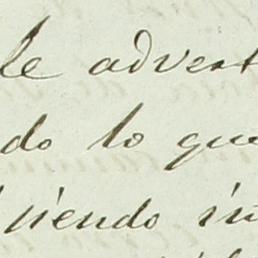 le advert
do lo que
siendo in